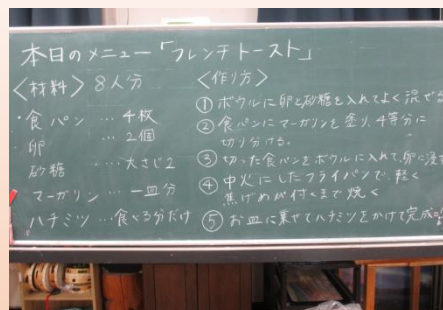 本日のメニュー「フレンチトースト」
<材料> 8人分
・食パン … 4枚
卵 … 2個
砂糖 … 大さじ2
マーガリン … 一皿分
ハチミツ … 食べる分だけ
<作り方>
① ボウルに卵と砂糖を入れてよく混ぜる
② 食パンにマーガリンを塗り、4等分に
切り分ける。
③ 切った食パンをボウルに入れて、卵に浸す
④ 中火にしたフライパンで、軽く
焦げめが付くまで焼く
⑤ お皿に乗せてハチミツをかけて完成